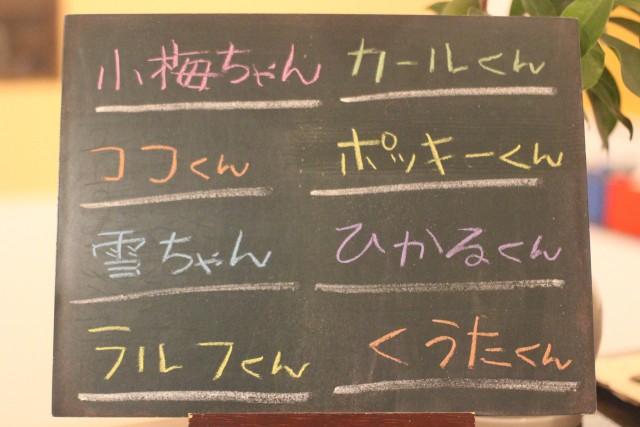 小梅ちゃん
カールくん
ココくん
ポッキーくん
雪ちゃん
ひかるくん
ラルフくん
くうたくん